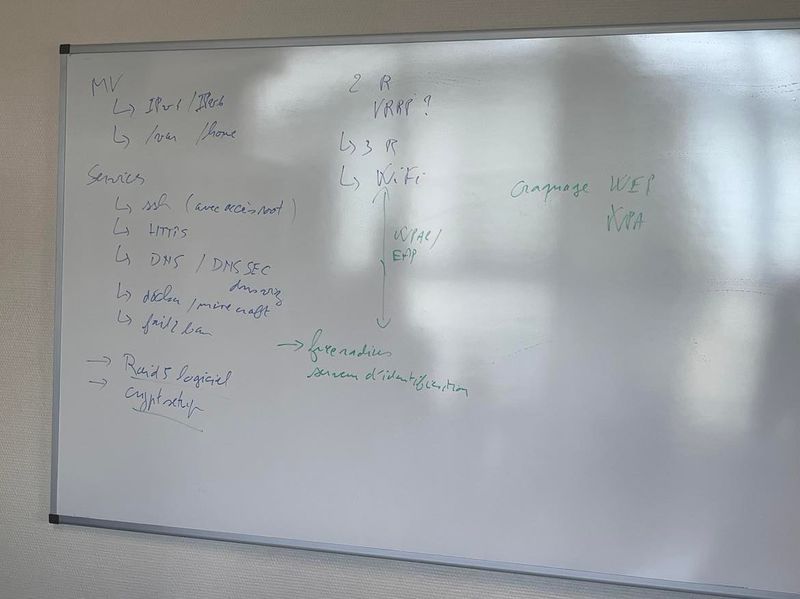 MV
↳ IPv4 / IPv6
↳ /var /home
Services
↳ ssh (avec accès root)
↳ HTTPS
↳ DNS / DNSSEC
dnsviz
↳ docker / minecraft
↳ fail2ban
→ Raid5 logiciel
→ cryptsetup
2 R
VRRP ?
↳ 3 R
↳ WiFi
WPA2/
EAP
→ freeradius
serveur d'identification
Craquage WEP
WPA